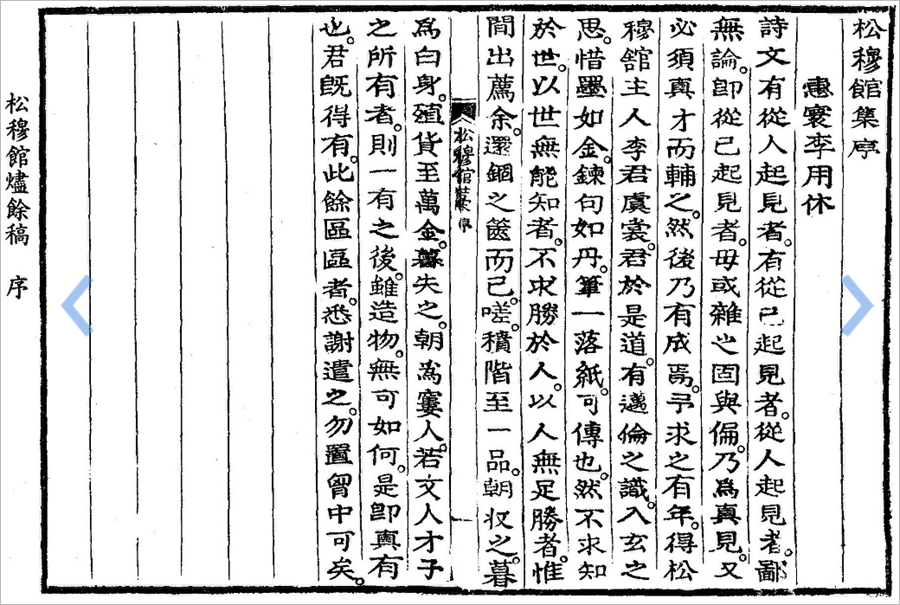 松穆館集序
惠寰李用休
詩文有從人起見者。有從己起見者。從人起見者。鄙
無論。卽從己起見者。毋或雜之固與偏。乃爲眞見。又
必須眞才而輔之。然後乃有成焉。予求之有年。得松
穆館主人李君虞裳。君於是道。有邁倫之識。入玄之
思。惜墨如金。鍊句如丹。筆一落紙。可傳也。然不求知
於世。以世無能知者。不求勝於人。以人無足勝者。惟
間出薦余。還錮之篋而已。嗟。積階至一品。朝収之。暮
松穆館 序 一
爲白身。殖貨至萬金。暮失之。朝爲窶人。若文人才子
之所有者。則一有之後。雖造物。無可如何。是卽眞有
也。君旣得有。此餘區區者。悉謝遣之。勿置胷中可矣。
松穆館燼餘稿 序